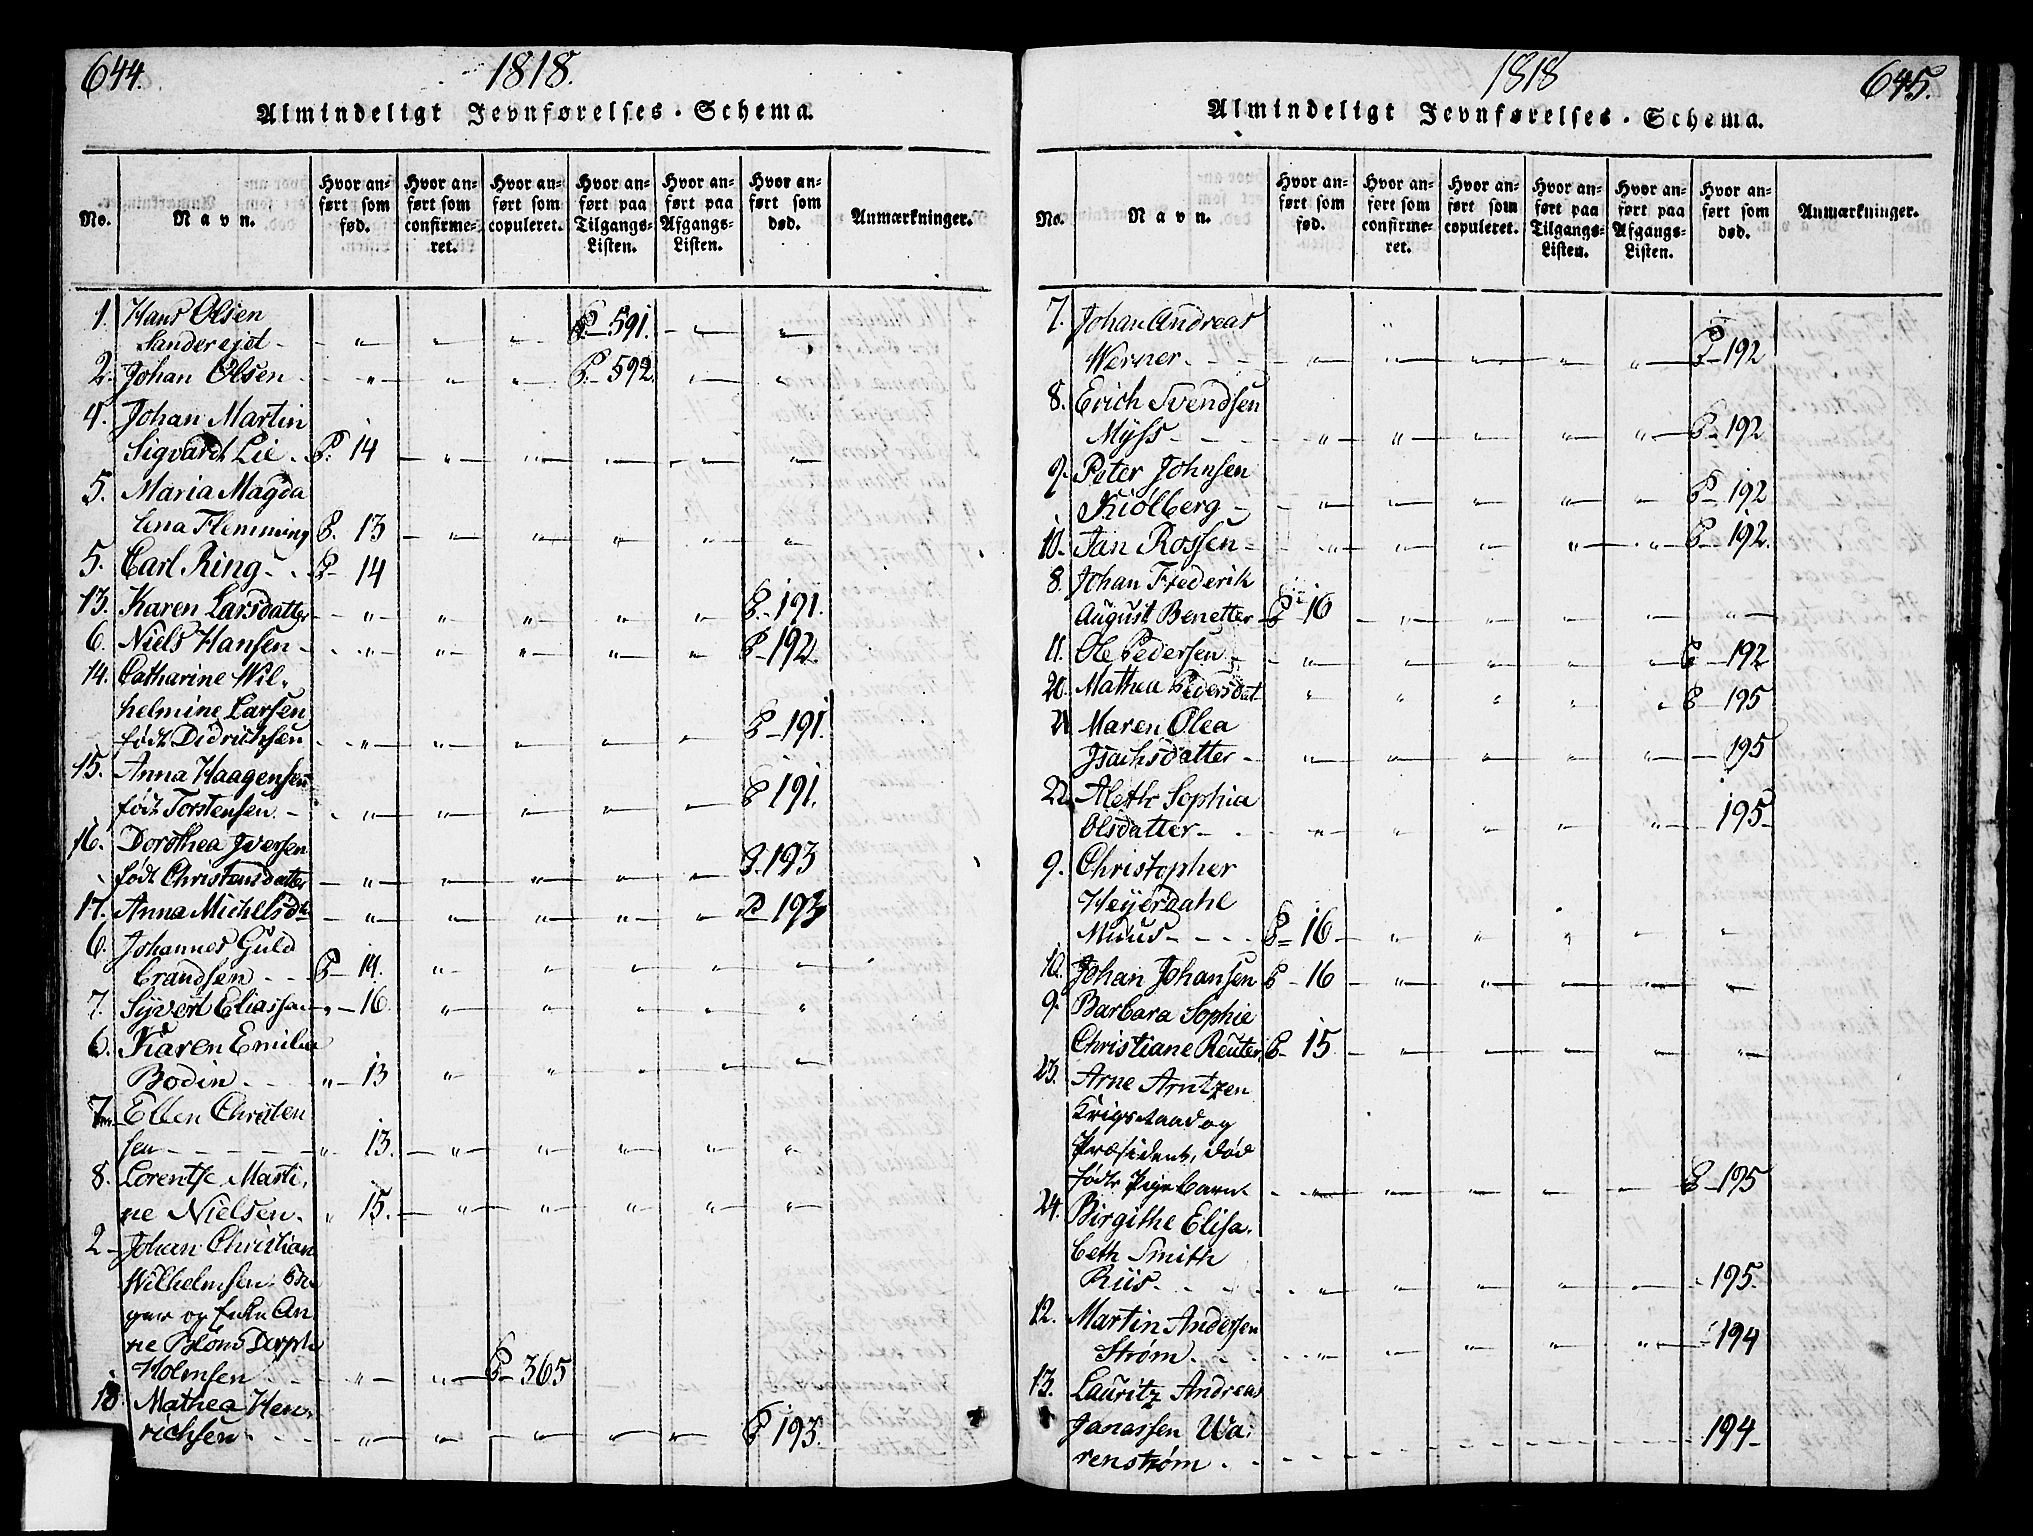 644.
1818.
Almindeligt Jevnførelses-Schema.
No.
Navn.
Hvor an-
ført som
fød.
Hvor an-
ført som
confirme-
ret.
Hvor an-
ført som
copuleret.
Hvor an-
ført paa
Tilgangs-
Listen.
Hvor an-
ført paa
Afgangs-
Listen.
Hvor an-
ført som
død.
Anmærkninger.
1. Hans Olsen
Sanderejet - " " " P. 591. " "
2. Johan Olsen - " " " P. 592. " "
4. Johan Martin
Sigvardt Lie P. 14 " " " " "
5. Maria Magda
lena Flemming P. 13 " " " " "
5. Carl Ring - P- 14
13. Karen Larsdatter " " " " " P. 191.
6. Niels Hansen " " " " " P 192.
14. Catharine Wil-
helmine Larsen
født Didrichsen " " " " " P 191.
15. Anna Haagensen
født Torstensen " " " " " P 191.
16. Dorothea Iversen
født Christensdatter " " " " " P. 193
17. Anna Michelsdtr " " " " " P 193
6. Johannes Guld
brandsen P- 14. " " " " "
7. Syvert Eliassen " 16. " " " " "
6. Karen Emilia
Bodin " 13 " " " " "
7. Ellen Christen
sen " 13. " " " " "
8. Lorentse Marti-
ne Nielsen " 15. " " " " "
2 Johan Christian
Wilhelmsen
og
ne Blom
Holmsen " " P- 365
18 Mathea Hen-
richsen " " " " " P 193.
645.
1818
Almindeligt Jevnførelses-Schema.
No.
Navn.
Hvor an-
ført som
fød.
Hvor an-
ført som
confirme-
ret.
Hvor an-
ført som
copuleret.
Hvor an-
ført paa
Tilgangs-
Listen.
Hvor an-
ført paa
Afgangs-
Listen.
Hvor an-
ført som
død.
Anmærkninger.
7. Johan Andreas
Werner " " " " " P 192
8. Erich Svendsen
Myss " " " " " P 192
9. Peter Johnsen
Kiølberg " " " " " P 192
10. Jan Rossen " " " " " P 192.
8. Johan Frederik
August Benetter P 16 " " " " "
11. Ole Pedersen " " " " " P 192
20. Mathea Pedersdat " " " " " P 195
21 Maren Olea
Isachsdatter " " " " " 195
22. Aleth Sophia
Olsdatter " " " " " 195
9. Christopher
Heyerdahl
Muus P= 16 " " " " "
10. Johan Johansen P 16 " " " " "
9. Barbara Sophie
Christiane Reuter P- 15 " " " " "
23. Arne Arntzen
Krigsraad og
Præsident, død
født Pigebarn " " " " " P 195
24. Birgithe Elisa-
beth Smith
Riis " " " " " 195.
12. Martin Andersen
Strøm " " " " " 194
13. Lauritz Andreas
Janassen Wa-
renstrøm 194